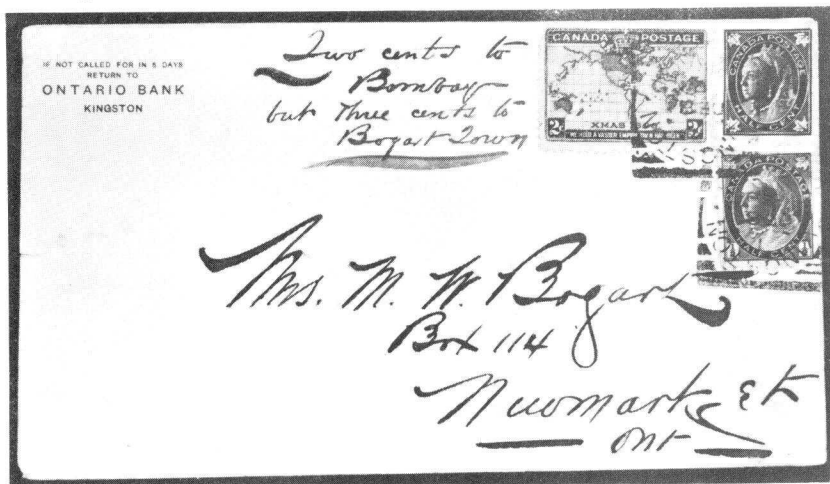 IF NOT CALLED FOR IN 5 DAYS
RETURN TO
ONTARIO BANK
KINGSTON
Two cents to
Bombay
but three cents to
Bogart Town
CANADA POSTAGE
XMAS 1898
2c 2c
WE HOLD A VASTER EMPIRE THAN HAS BEEN
CANADA POSTAGE
HALF CENT
CANADA POSTAGE
HALF CENT
Mrs. M. W. Bogart
Box 114
Newmarket
Ont